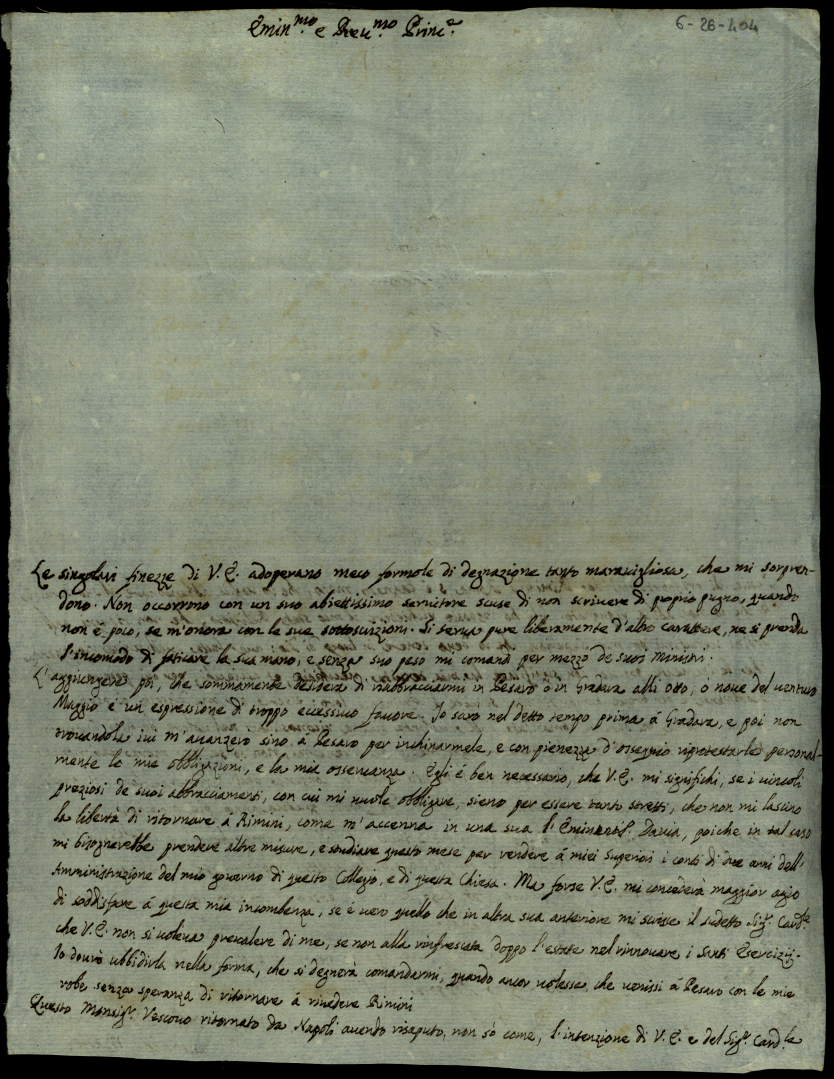 6-28-404
Emin.mo e Reu.mo Princ.e
Le singolari finezze di V.E. adoperano meco formole di degnazione tanto marauigliose, che mi sorpren-
dono. Non occorrono con un suo abiettissimo seruitore scuse di non scriuere di proprio pugno, quando
non è poco, se m'onora con la sua sottoscrizioni. Si serua pure liberamente d'altro carattere, ne si prenda
l'incomodo di faticare la sua mano, e senza suo peso mi comandi per mezzo de suoi Ministri.
L'aggiungere poi, che sommamente desidera di riabbracciarmi in Pesaro ò in Gradara alli otto, ò noue del uenturo
Maggio è un espressione di troppo eccessiuo fauore. Io sarò nel detto tempo prima á Gradara, e poi non
trouandola iui m'auanzerò sino á Pesaro per inchinarmele, e con pienezza d'ossequio riprotestarle personal-
mente le mie obbligazioni, e la mia osseruanza. Egli è ben necessario, che V.E. mi significhi, se i uincoli
preziosi de suoi abbracciamenti, con cui mi uuole obbligare, sieno per essere tanto stretti, che non mi lascino
la libertà di ritornare á Rimini, come m'accenna in una sua l'Eminentis.o Dauia, poiche in tal caso
mi bisognerebbe prendere altre misure, e studiare questo mese per rendere á miei Superiori i conti di due anni dell'
Amministrazione del mio gouerno di questo Collegio, e di questa Chiesa. Ma forse V.E. mi concederà maggior agio
di soddisfare á questa mia incombenza, se è uero quello che in altra sua anteriore mi scrisse il sudetto Sig.r Card.le
che V.E. non si uoleua preualere di me, se non alla rinfrescata doppo l'estate nel rinnouare i Santi Esercizij.
Io dourò ubbidirla nella forma, che si degnerà comandarmi, quando ancor uolesse, che uenissi á Pesaro con le mie
robe senza speranza di ritornare á riuedere Rimini
Questo Monsig.r Vescouo ritornato da Napoli auendo risaputo, non sò come, l'intenzione di V.E. e del Sig.r Card.le